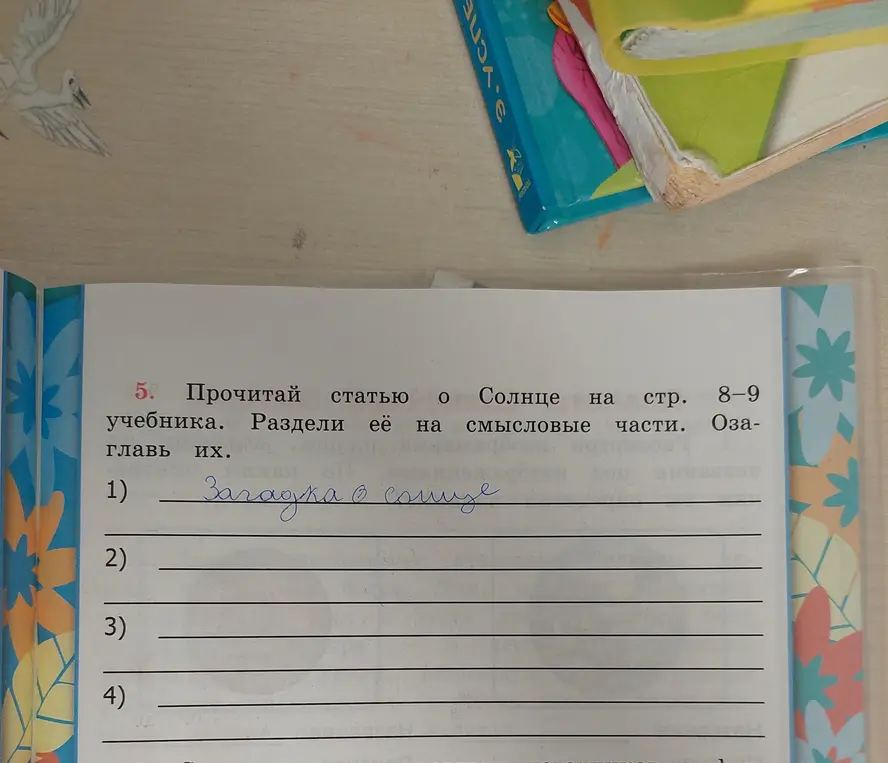 5. Прочитай статью о Солнце на стр. 8–9
учебника. Раздели её на смысловые части. Оза-
главь их.
1) Загадка о солнце
2)
3)
4)